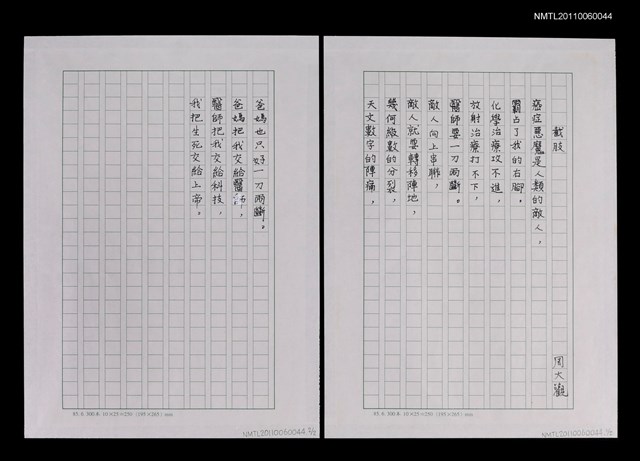 NMTL20110060044
截肢
周大觀
癌症惡魔是人類的敵人，
霸占了我的右腳，
化學治療攻不進，
放射治療打不下，
醫師要一刀兩斷。
敵人向上串聯，
敵人就要轉移陣地，
幾何級數的分裂，
天文數字的陣痛，
85. 6. 300本 10×25＝250（195×265）mm
NMTL20110060044 1/2
爸媽也只好一刀兩斷。
爸媽把我交給醫師，
醫師把我交給科技，
我把生死交給上帝。
85. 6. 300本 10×25＝250（195×265）mm
NMTL20110060044 2/2